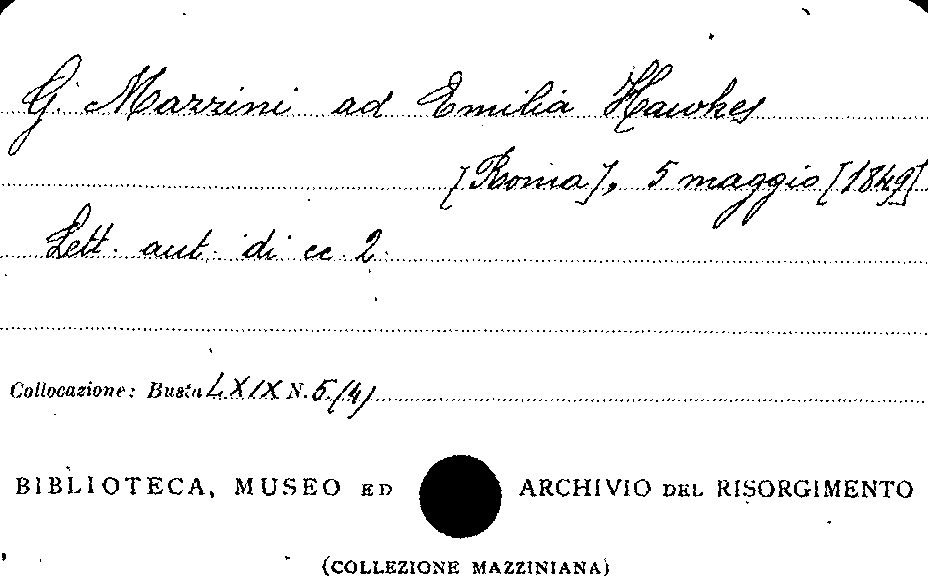 G. Mazzini ad Emilia Hawkes
[Roma], 5 maggio [1849]
Lett. aut. di cc. 2.
Collocazione: Busta LXIX N. 5/(4)
BIBLIOTECA, MUSEO ED ARCHIVIO DEL RISORGIMENTO
(COLLEZIONE MAZZINIANA)